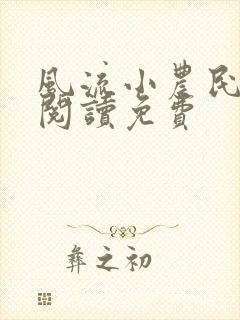 風流小農民
閱讀免費
彝之初